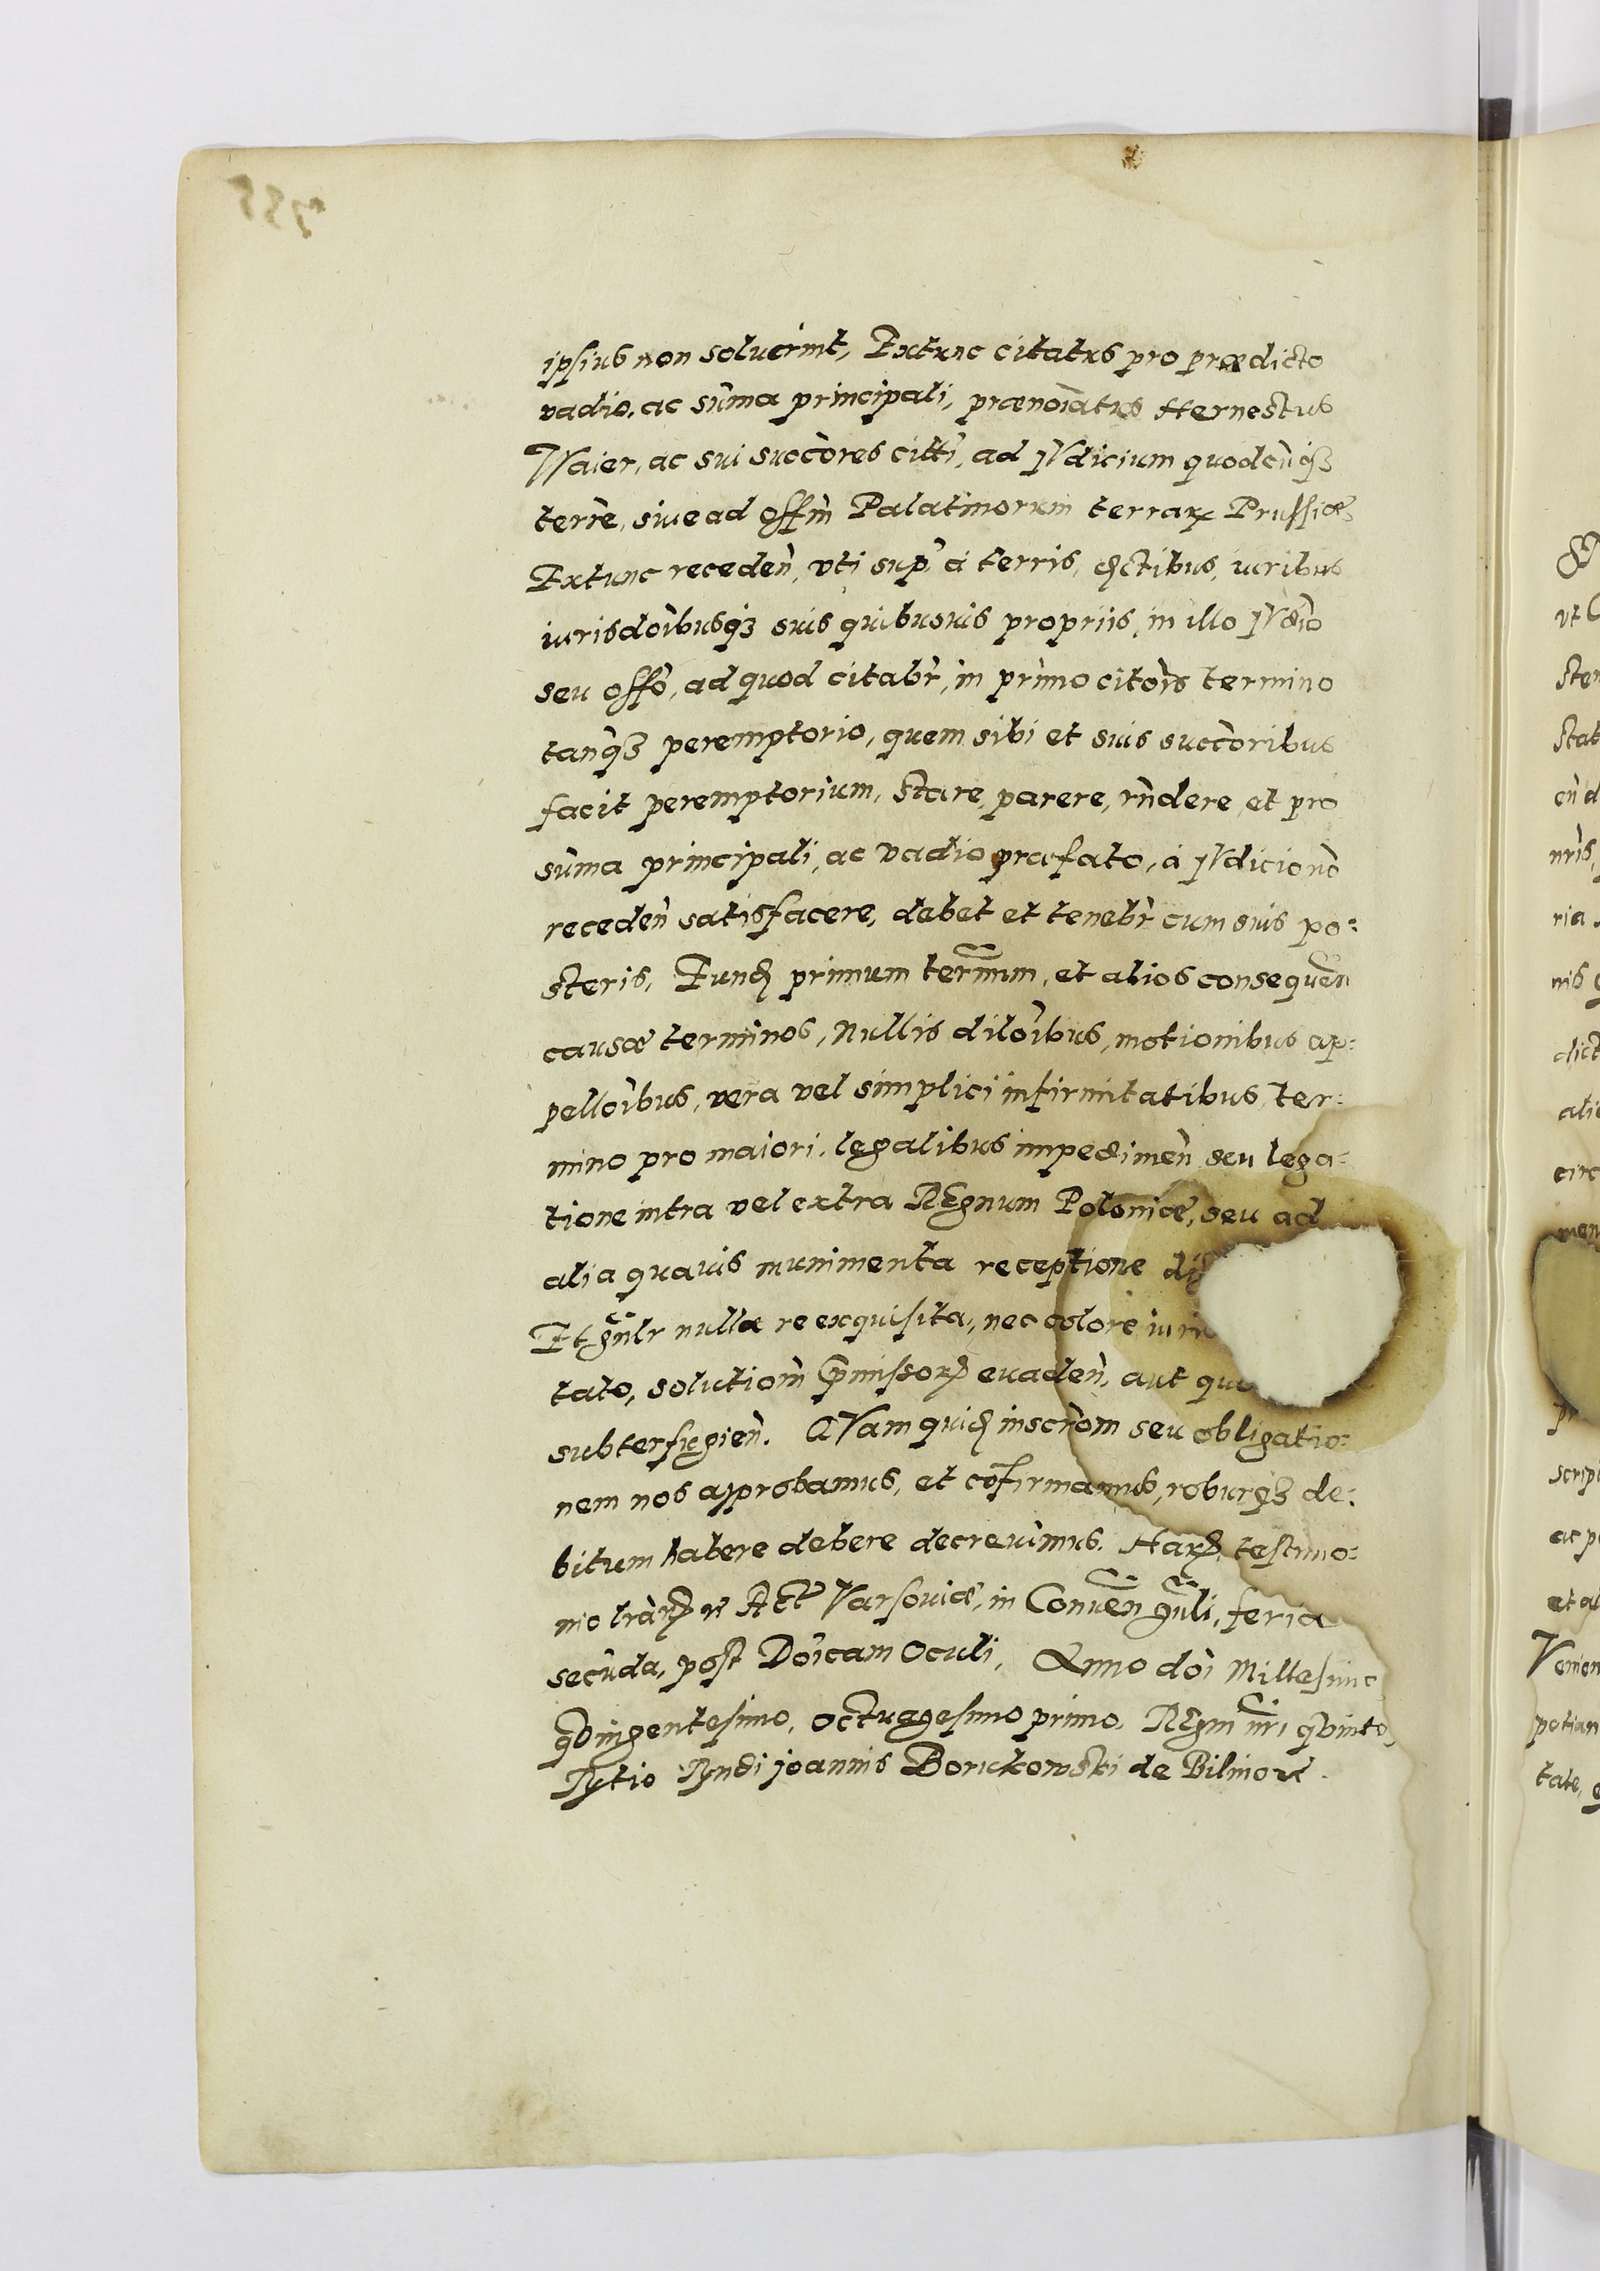 ipsius non soluerint, Extunc citatus pro prædicto
vadio, ac sum̃a principali, prænoĩatus Hernestus
Waier, ac sui succõres citti, ad Iudicium quodcũqꝫ
terr̃e, siue ad offm̃ Palatinorum terraꝝ Prussiæ,
Extunc recedeñ, vti sup̃ à terris, iuribus
iurisdõibusqꝫ suis quibusuis propriis, in illo Iudio
seu offõ, ad quod citabr̃, in primo citõis termino
tanqꝫ peremptorio, quem sibi et suis succõribus
facit peremptorium, stare, parere, rñdere, et pro
sum̃a principali, ac vadio præfato, à Iudicio nõ
recedeñ satisfacere, debet et tenebr̃ cum suis po:
steris, Eund primum term̃inum, et alios consequeñ
causæ terminos, Nullis dilõibus, motionibus ap:
pellõibus, vera vel simplici infirmitatibus, ter:
mino pro maiori, legalibus impedimeñ seu lega:
tione intra vel extra REgnum Poloniæ, seu ad
alia quauis munimenta receptione
Et gñlr nulla re exquisita, nec colore
tato, solutiom̃ p̃missoꝝ euadeñ, aut
subterfugieñ. QVam quid inscrõm seu obligatio:
nem nos approbamus, et cõfirmamus, roburqꝫ de:
bitum habere debere decreuimus. Haꝝ testimo:
nio lrãꝝ Act Varsouiæ, in Conueñ gñli, feria
secũda, post Dõicam Oculi, Anno dõi Millesimo
qVingentesimo, octuagesimo primo, REgni nr̃i qVinto,
Joannis Boruckowski de Bilino